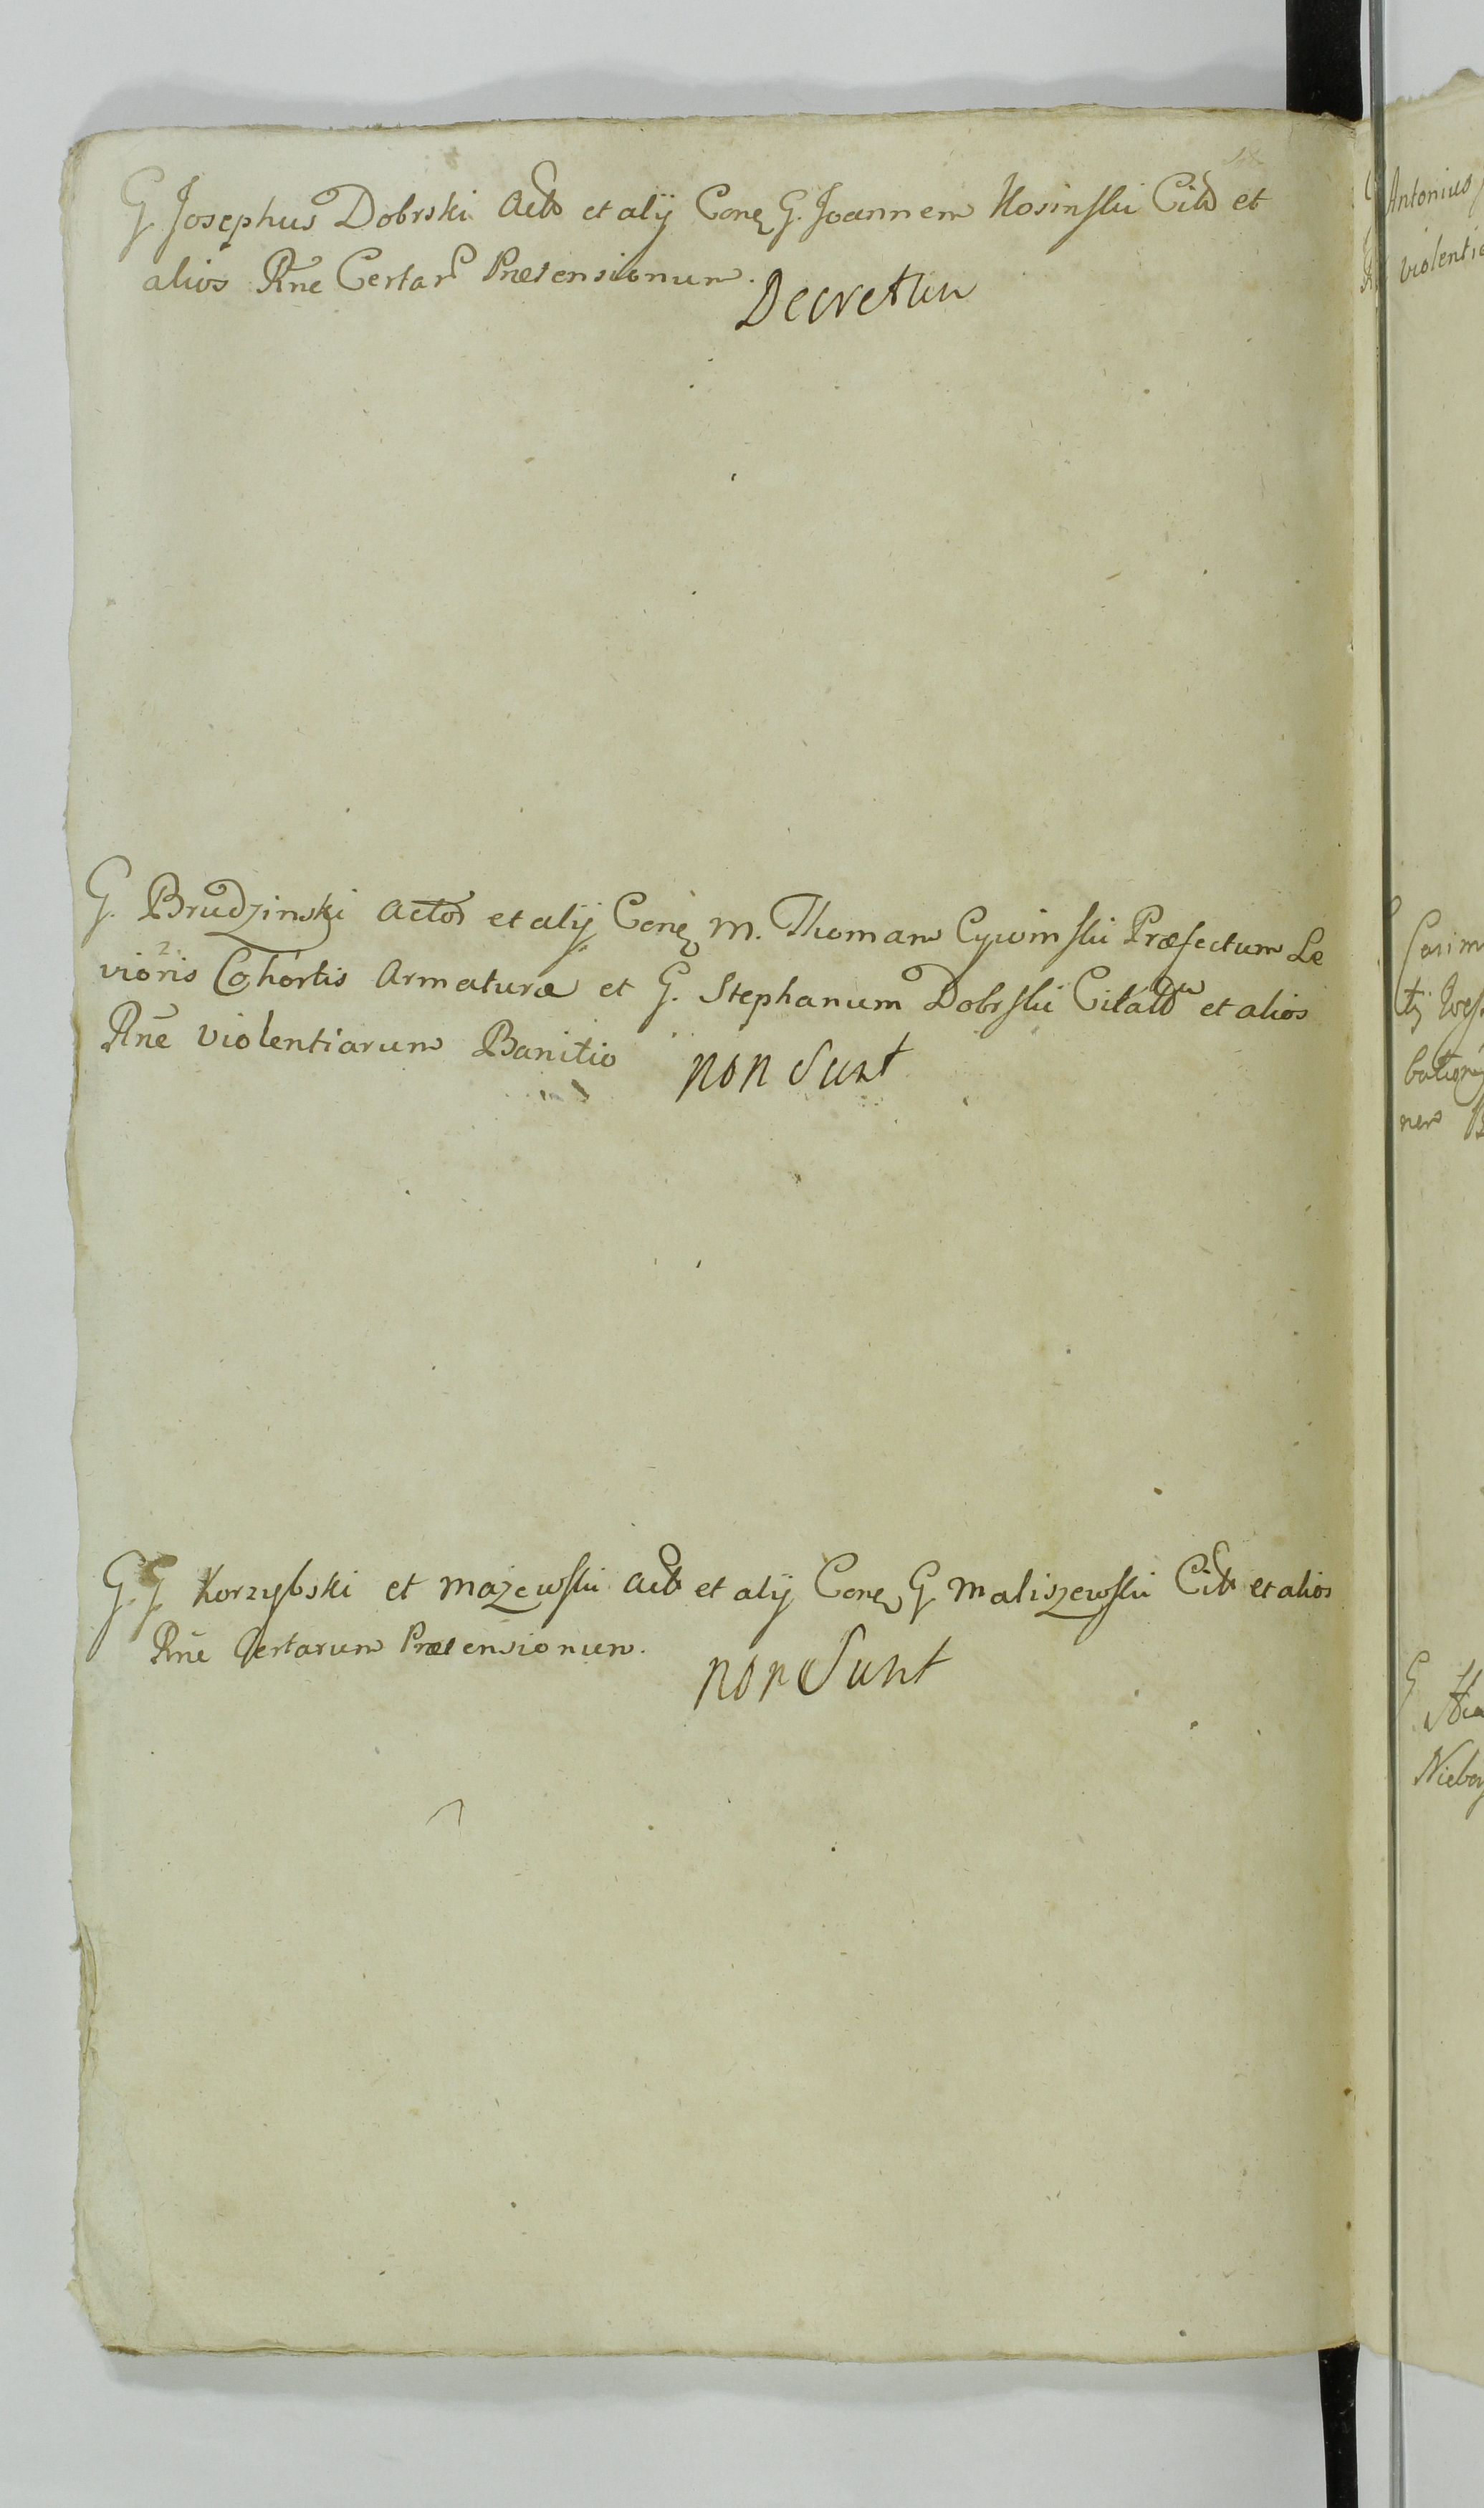 G. Josephus Dobrski Acto et alij Con̄e G. Joannem Kosinski Cito et
alios R̄ne Certar Praetensionum.
Decretum
G. Brudzinski Actos et alij Con̄e M. Thomam Cywinski Præfectum Le
vioris Cohortis Armaturæ et G. Stephanum Dobrski Citatum et alios
R̄ne violentiarum Banitio
non sunt
G. G Korzybski et Mazewski Act et alij Con̄e G Maliszewski Cit et alios
R̄ne Certarum Prætensionum.
non sunt
Antonius
violentia